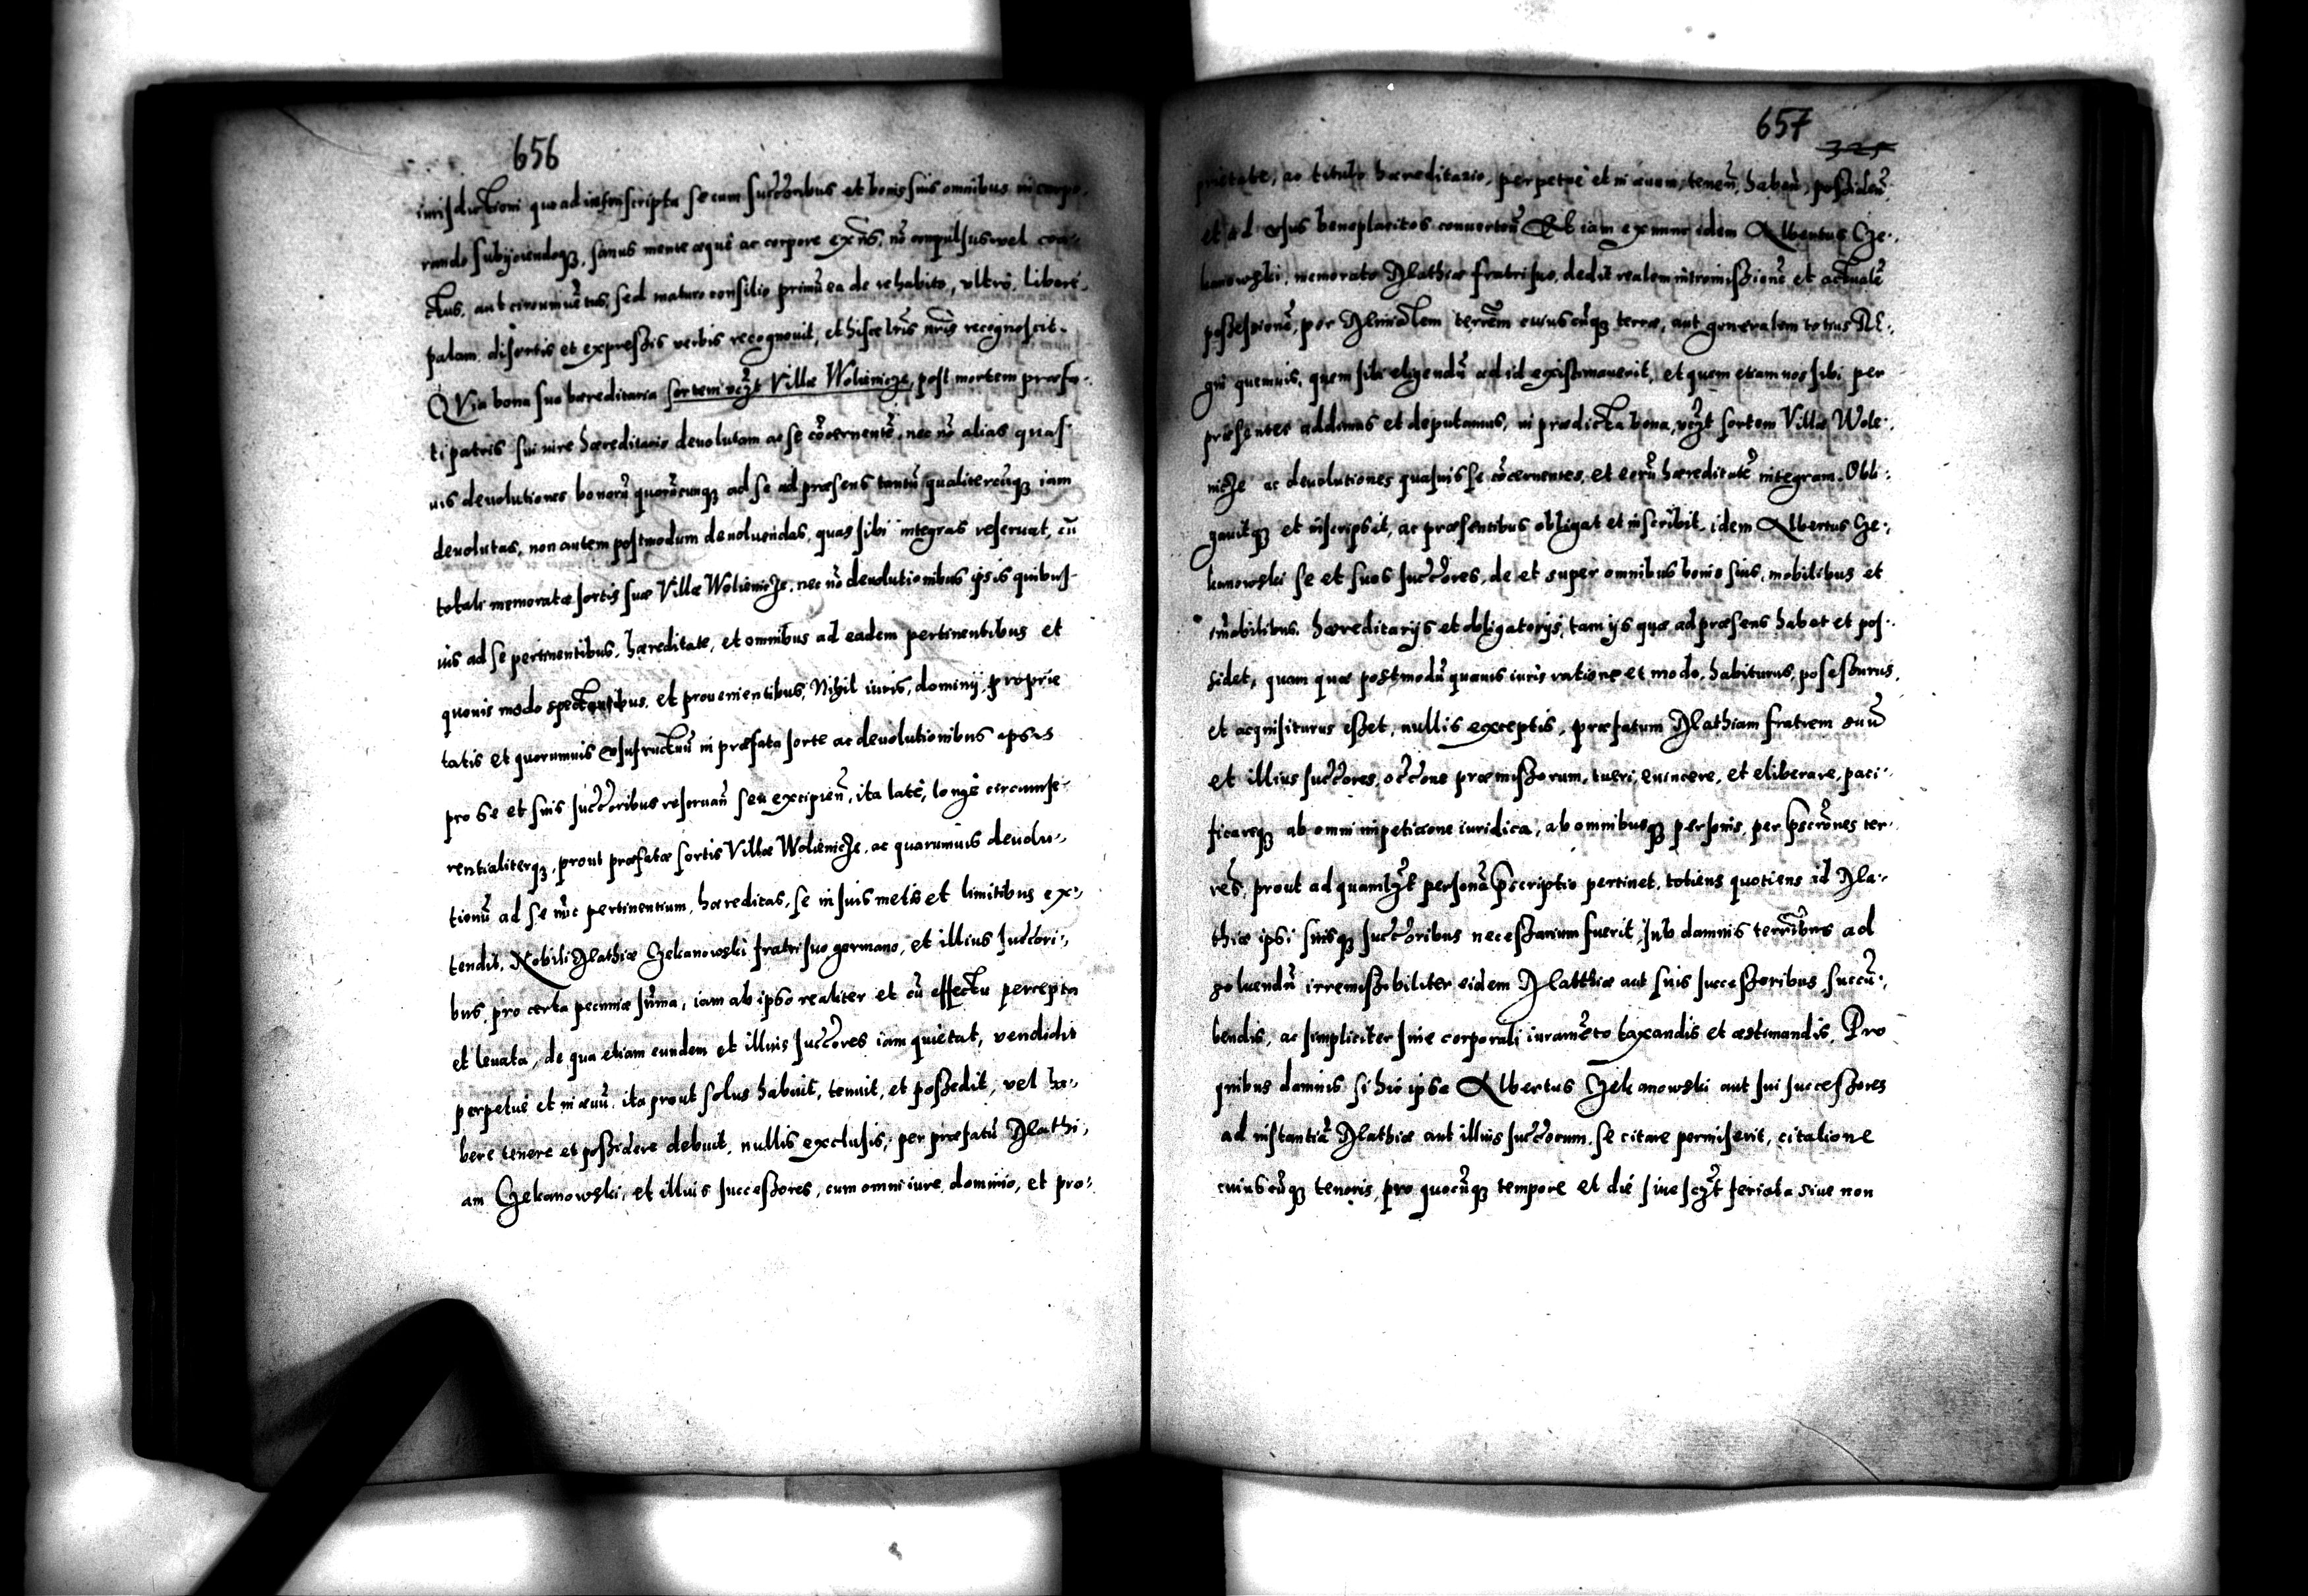 656
iurisdictioni quo ad infrascripta se cum succ̃oribus et bonis suis omnibus incorpo-
rando subijciendoqꝫ, sanus mente æquè ac corpore exñs, nõ compulsus vel coa-
ctus, aut circumuẽtus, sed maturo consilio primũ ea de re habito, vltrò, liberè
palam, disertis et expreßis verbis recognouit, et hisce lr̃is nr̃is recognoscit.
QVia bona sua hæreditaria sortem vcꝫt Villæ Wolienicze, post mortem præfa-
ti patris sui iure hæreditario deuolutam ac se cõcernentẽ, nec nõ alias quas-
uis deuolutiones bonorũ quorũcunqꝫ ad se ad præsens tantũ qualitercũqꝫ iam
deuolutas, non autem postmodum deuoluendas, quas sibi integras reseruat, cũ
totali memoratæ sortis suæ Villæ Wolienicze, nec nõ deuolutionibus ipsis quibus-
uis ad se pertinentibus, hæreditate, et omnibus ad eadem pertinentibus et
quouis modo spectantibus, et prouenientibus, Nihil iuris, dominij, proprie
tatis et quorumuis vsufructuũ in præfata sorte ac deuolutionibus ipsis
pro se et suis succ̃oribus reseruañ seu excipieñ, ita latè, longè circumfe-
rentialiterqꝫ, prout præfatæ sortis Villæ Wolienicze, ac quarumuis deuolu-
tionũ ad se nũc pertinentium, hæreditas, se in suis metis et limitibus ex-
tendit, Nobili Mathiæ Czekanowski fratri suo germano, et illius succ̃ori-
bus, pro certa pecuniæ sũma, iam ab ipso realiter et cũ effectu percepta
et leuata, de qua etiam eundem et illius succ̃ores iam quietat, vendidit
perpetuè et in æuũ, ita prout solus habuit, tenuit, et poßedit, vel ha-
bere tenere et poßidere debuit, nullis exclusis, per præfatũ Mathi-
am Czekanowski, et illius succeßores, cum omni iure, dominio, et pro-
657
325
prietate, ac titulo hæreditario, perpetuè et in æuum, teneñ, habeñ, poßideñ,
et ad vsus beneplacitos conuerteñ Et iam ex nunc idem Albertus Cze-
kanowski, memorato Mathiæ fratri suo, dedit realem intromißionẽ et actualẽ
poßeßionẽ, per Ministrlem terrẽm cuiuscũqꝫ terræ, aut generalem totius RE-
gni quemuis, quem sibi eligendũ ad id existimauerit, et quem etiam nos sibi per
præsentes addimus et deputamus, in prædicta bona, vcꝫt sortem Villæ Wole-
nicze ac deuolutiones quasuis se cõcernentes, et eorũ hæreditatẽ integram. Obli-
gauitqꝫ et inscripsit, ac præsentibus obligat et inscribit, idem Albertus Cze-
kanowski se et suos succ̃ores, de et super omnibus bonis suis, mobilibus et
im̃obilibus, hæreditarijs et obligatorijs, tam ijs quæ ad præsens habet et pos-
sidet, quam quæ postmodũ quauis iuris ratione et modo, habiturus, poßeßurus,
et acquisiturus eßet, nullis exceptis, præfatum Mathiam fratrem suũ
et illius succ̃ores, occ̃one præmißorum, tueri, euincere, et eliberare, paci-
ficareqꝫ ab omni impeticione iuridica, ab omnibusqꝫ personis, per pscrõnes ter-
res, prout ad quamlꝫt personã pscriptio pertinet, totiens quotiens id Ma-
thiæ ipsi suisqꝫ succ̃oribus neceßarium fuerit, sub damnis terrr̃ibus ad
soluendũ irremißibiliter eidem Matthiæ aut suis succeßoribus, succũ-
bendis, ac simpliciter sine corporali iuramẽto taxandis et æstimandis. Pro
quibus damnis si hic ipse Albertus Czekanowski aut sui succeßores
ad instantiã Mathiæ aut illius succ̃orum, se citare permiserit, citatione
cuiuscũqꝫ tenoris, pro quocũqꝫ tempore et die siue scꝫt feriata siue non